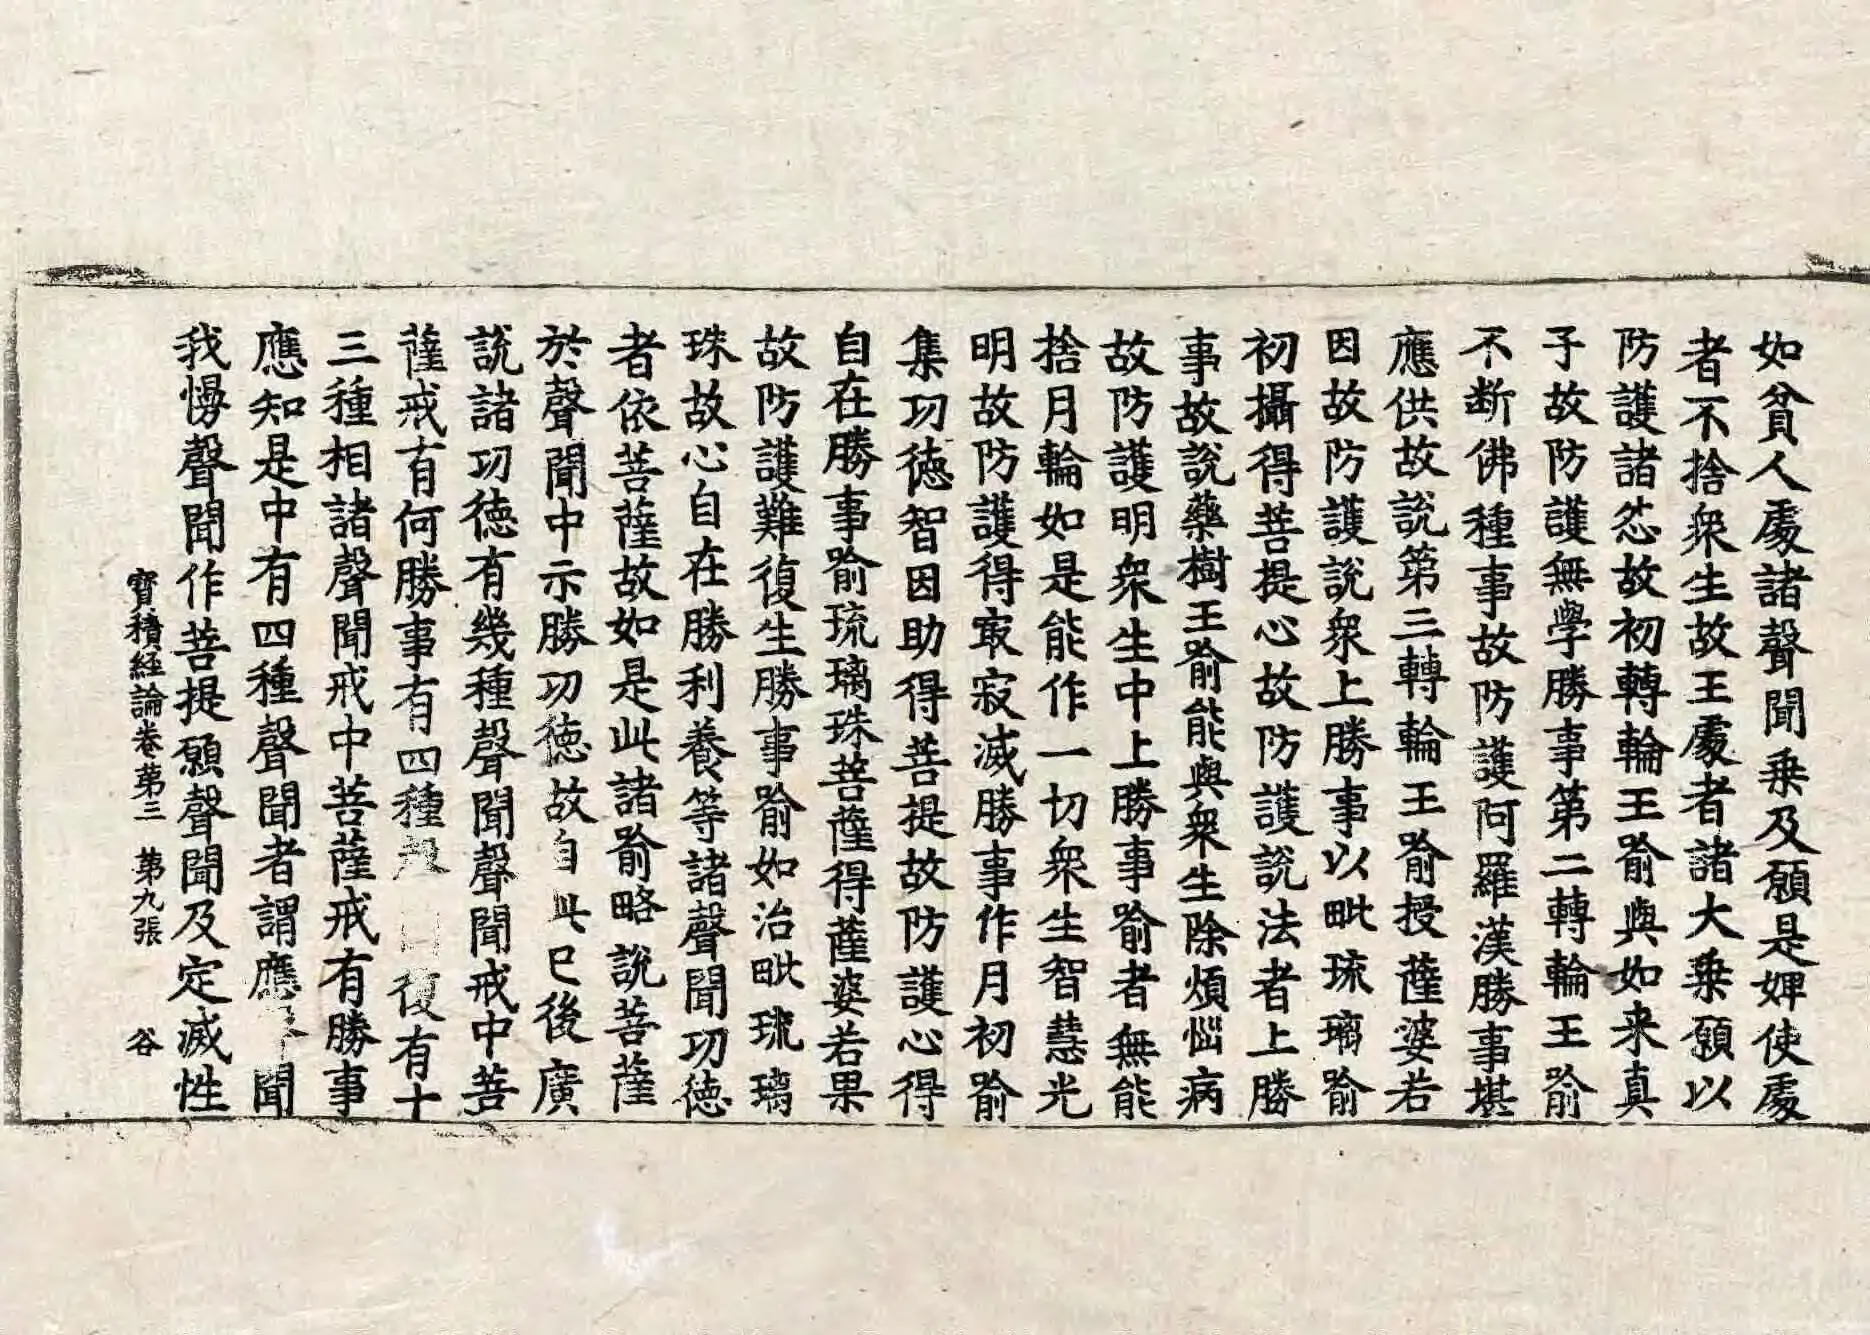 如貧人處諸聲聞乗及願是婢使處
者不捨衆生故王處者諸大乗願以
防護諸㤀故初轉輪王喻與如来真
子故防護無學勝事第二轉輪王喻
不断佛種事故防護阿羅漢勝事堪
應供故說第三轉輪王喻授薩婆若
因故防護說衆上勝事以毗琉璃喻
初攝得菩提心故防護說法者上勝
事故說藥樹王喻能與衆生除煩惱病
故防護明衆生中上勝事喻者無能
捨月輪如是能作一切衆生智慧光
明故防護得寂寂滅勝事作月初喻
集功徳智因助得菩提故防護心得
自在勝事喻琉璃珠菩薩得薩婆若果
故防護難復生勝事喻如治毗琉璃
珠故心自在勝利養等諸聲聞功徳
者依菩薩故如是此諸喻略說菩薩
於聲聞中示勝功徳故自此已後廣
說諸功徳有幾種聲聞聲聞戒中菩
薩戒有何勝事有四種復有十
三種相諸聲聞戒中菩薩戒有勝事
應知是中有四種聲聞者謂應聞
我慢聲聞作菩提願聲聞及定滅性
寳積経論卷第三 第九張 谷